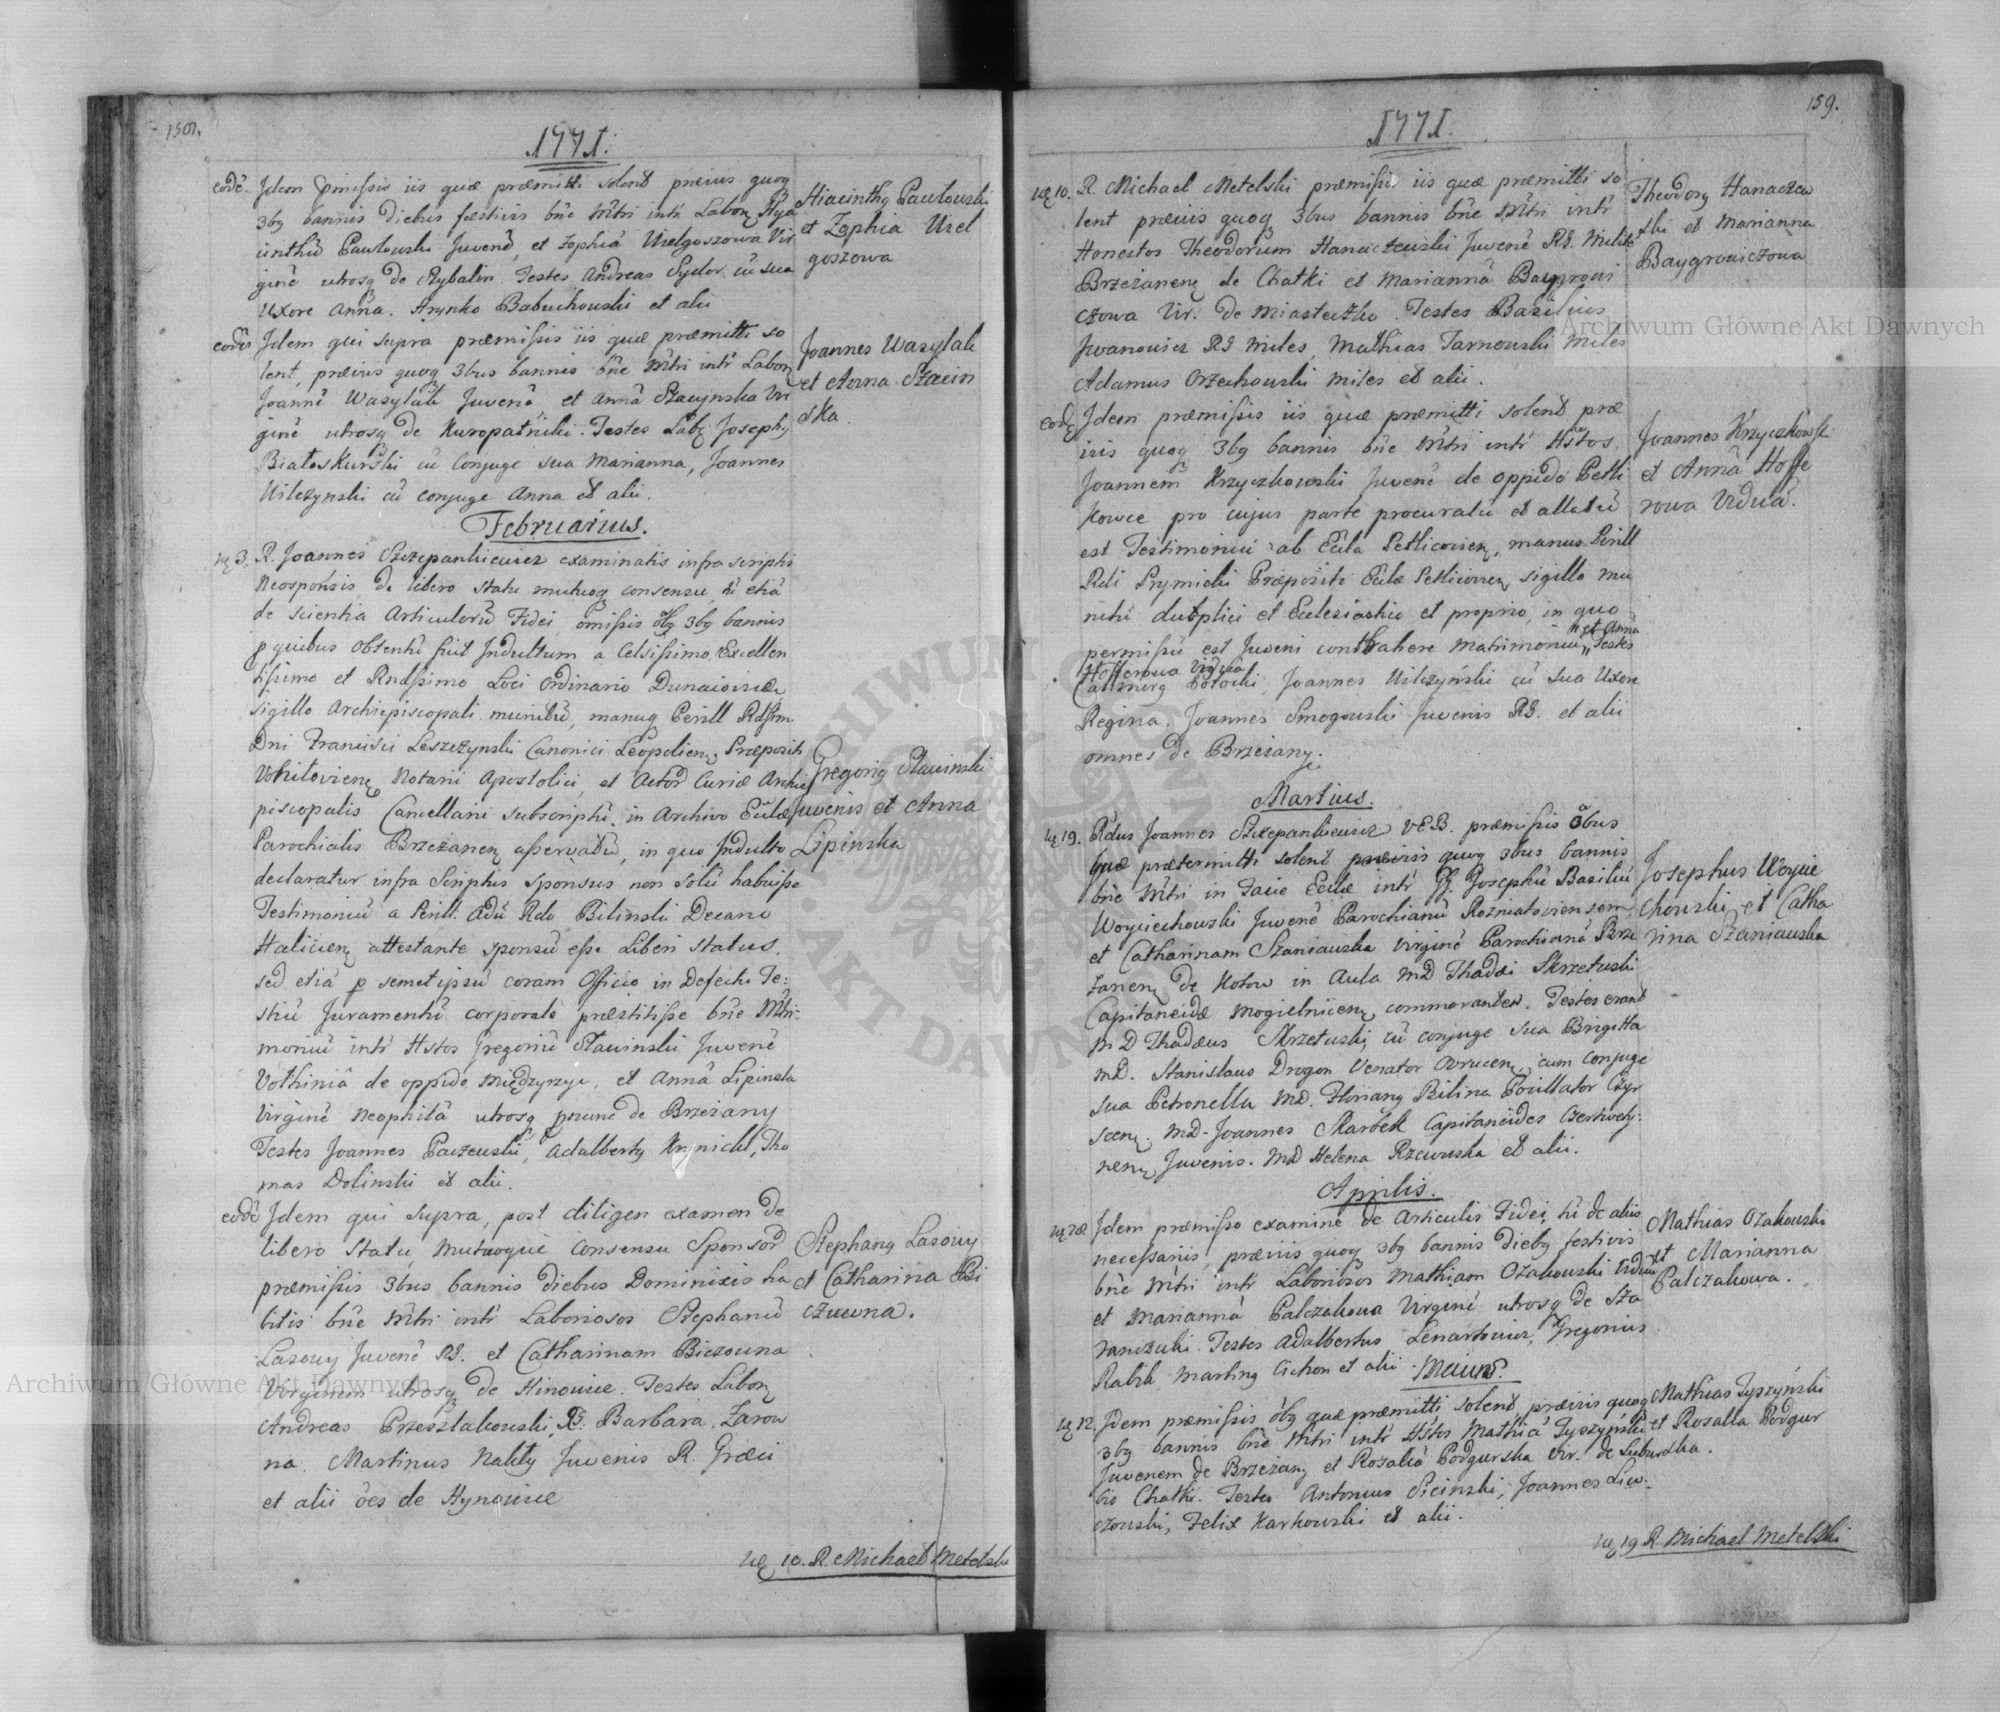 158.
1771.
eodē. Idem p̄missis iis quæ præmitti solent præviis quoq̨
3bꝫ bannis diebus festivis bn̄e Mtri intr Laborꝫ Hya
cinthū Pawłowski Juvenē, et Zophiā Uselgoszowa Vir
ginē utrosq̨ de Rybalin. Testes Andreas Sydor cū sua
Uxore Anna. Hrynko Babuchowski et alii
Hiacinthꝫ Pawłowski
et Zophia Usel
goszowa
eodē Idem qui supra præmissis iis quæ præmitti so
lent, præviis quoq̨ 3bus bannis bn̄e Mtri intr Laborꝫ
Joannē Wasylak Juvenē et Annā Stacinska Vir
ginē utrosq̨ de Kuropatniki. Testes Labꝫ Josephꝫ
Białoskurski cū Conjuge sua Marianna, Joannes
Wilczynski cū conjuge Anna et alii.
Joannes Wasylak
et Anna Stacin
ska.
Februarius.
3. R. Joannes Szczepankiewicz examinatis infra scriptis
Neosponsis, de libero statu mutuoq̨ consensu, tū etiā
de scientia Articulorū Fidei, omissis 3bꝫ bannis
p quibus obtentū fuit Indultum a Celsissimo Excellen
tissimo et Rndssimo Loci Ordinario Dunaioviciæ
sigillo Archiepiscopali munitū, manuq̨ Perill Rdssmi
Dni Francisci Leszczynski Canonici Leopolienꝫ, Præpositi
Notarii Apostolici, et Actorū Curiæ Archie
piscopalis Cancellarii subscriptū, in Archivo Eccłæ
Parochialis Brzezanenꝫ asservatū, in quo Indulto
declaratur infra Scriptus sponsus non solū habuisse
Testimoniū a Perill. Adū Rdo Bilinski Decano
Halicienꝫ attestante sponsū esse Liberi status,
sed etiā p semetipsū coram Officio in Defectu Te=
stiū Juramentū corporale præstitisse bn̄e Mtri=
moniū intr Hstos Gregoriū Stawinski Juvenē
Vołhiniā de oppido Międzyrzyc, et Annā Lipinska
Virginē Neophitā utrosq̨ p̄nunc de Brzezany
Testes Joannes Paczewski, Adalbertꝫ Krynicki, Tho
mas Dolinski et alii.
Gregoriꝫ Stawinski
Juvenis et Anna
Lipinska
eodē Idem qui supra, post diligen examen de
libero Statu, Mutuoque Consensu Sponsorū
præmissis 3bus bannis diebus Dominicis ha
bitis bn̄e Mtri intr Laboriosos Stephanū
Lasowy Juvenē RS. et Catharinam Biczowna
Virginem utrosq̨ de Hinowice. Testes Laborꝫ
Andreas Przesztakowski, RS. Barbara Zarow
na. Martinus Nality Juvenis R. Græci
et alii oēs de Hynowice
Stephanꝫ Lasowy
et Catharina Bi
czuwna.
10. R. Michael Metelski
159.
1771.
10. R. Michael Metelski præmissis iis quæ præmitti so
lent præviis quoq̨ 3bus bannis bn̄e Mtri intr
Honestos Theodorum Hanaczewski Juvenē RS. Militē
Brzezanenꝫ de Chatki et Mariannā Baygrowi
czowa Vir. de Miasteczko. Testes Basilius
Jwanowicz RS Miles, Mathias Tarnowski Miles
Adamus Orzechowski Miles et alii.
Theodorꝫ Hanaczew
ski et Marianna
Baygrowiczowa
eodꝫ Idem præmissis iis quæ præmitti solent præ
viis quoq̨ 3bꝫ bannis bn̄e Mtri intr Hstos
Joannem Krzyczkowski Juvenē de oppido Petli
kowce pro cujus parte procuratū et allatū
est Testimoniū ab Eccla Petlicovienꝫ, manus Perill
Rdi Prymicki Præpositi Eccłæ Petlicovienꝫ, sigillo mu
nitū duplici et Ecclesiastico et proprio, in quo
permissū est Juveni contrahere Matrimoniū " et Annā
Hofferowa Vidua " Testes
Casimirꝫ Potocki, Joannes Wilczyński cū sua Uxore
Regina, Joannes Smogowski Juvenis RS. et alii
omnes de Brzezany.
Joannes Krzyczkowski
et Annā Hoffe
rowa Viduā.
Martius.
19. Rdus Joannes Szczepankiewicz V.E.B. præmissis ōbus
quæ prætermitti solent præviis quoq̨ 3bus bannis
bn̄e Mtri in Facie Eccłæ intr Josephū Basiliū
Woyciechowski Juvenē Parochianū Rozniatoviensem
et Catharinam Szaniawska Virginē Parochianā Brze
zanenꝫ de Kotow in Aula MD Thaddæi Skrzetuski
Capitaneidæ Mogielnicenꝫ commorantes. Testes erant
MD Thaddæus Skrzetuski cū conjuge sua Brigitta
MD. Stanislaus Drogon Venator Owrucenꝫ, cum Conjuge
sua Petronella MD. Florianꝫ Bilina Pocillator Czyr
scenꝫ. MD. Joannes Skarbek Capitaneides Czerwony=
nenꝫ Juvenis. MD Helena Rzewuska et alii.
Josephus Woycie
chowski et Catha
rina Szaniawska
Aprilis.
28. Idem præmisso examine de Articulis Fidei, tū de aliis
necessariis, præviis quoq̨ 3bꝫ bannis diebꝫ festivis
bn̄e Mtri intr Laboriosos Mathiam Ozakowski Viduū
et Mariannā Palczakowa Virginē utrosq̨ de Sza
ranczuki. Testes Adalbertus Lenartowicz, Gregorius
Rabik, Martinꝫ Cichon et alii.
Mathias Ozakowski
et Marianna
Palczakowa.
Maius.
12. Idem præmissis ōbꝫ quæ præmitti solent, præviis quoq̨
3bꝫ bannis bn̄e Mtri intr Hstos Mathiā Tyszyński
Juvenem de Brzezany et Rosaliā Podgurska Vir. de Subur
bio Chatki. Testes Antonius Sicinski, Joannes Liw=
czowski, Felix Karkowski et alii.
Mathias Tyszyński
et Rosalia Podgur
ska.
19 R Michael Metelski
Archiwum Główne Akt Dawnych
Archiwum Główne Akt Dawnych